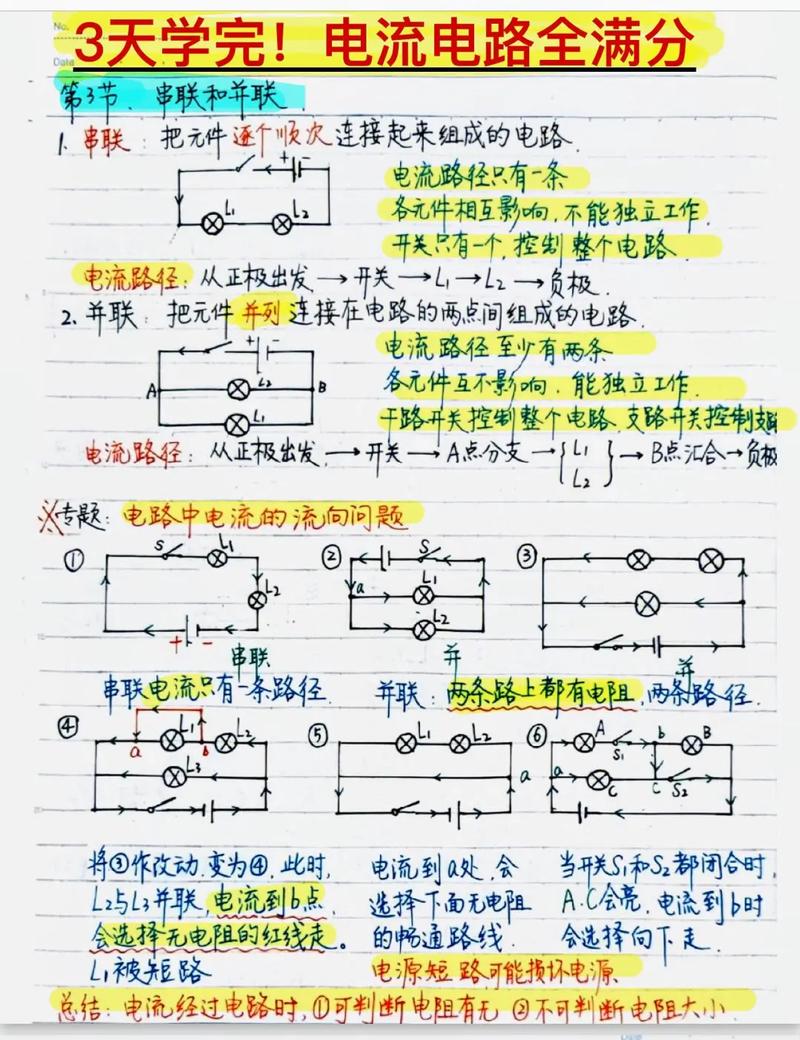 No.
Date
3天学完！电流电路全满分
第3节、串联和并联
1. 串联：把元件逐个顺次连接起来组成的电路.
+ -
L1 L2
电流路径只有一条
各元件相互影响,不能独立工作.
开关只有一个,控制整个电路.
电流路径：从正极出发→开关→L1→L2→负极.
2. 并联：把元件并列连接在电路的两点间组成的电路.
+ -
A L2 B
L1
电流路径至少有两条
各元件互不影响,能独立工作.
干路开关控制整个电路,支路开关控制支路
电流路径：从正极出发→开关→A点分支→{L1 L2}→B点汇合→负极
※专题：电路中电流的流向问题
① S L1 L2 + -
② S a L1 L2
③
串联 并 并
串联电流只有一条路径.
并联：两条路上都有电阻,两条路径.
④ L1 L2 a b L3
⑤ L1 L2 a
⑥ A S1 b B a C c S2
将③作改动,变为④,此时,
L2与L3并联,电流到b点,
会选择无电阻的红线走。
L1被短路
电流到a处,会
选择下面无电阻
的畅通路线.
电源短路可能损坏电源
当开关S1和S2都闭合时,
A.C会亮,电流到b时
会选择向下走.
总结：电流经过电路时,①可判断电阻有无 ②不可判断电阻大小.
Date